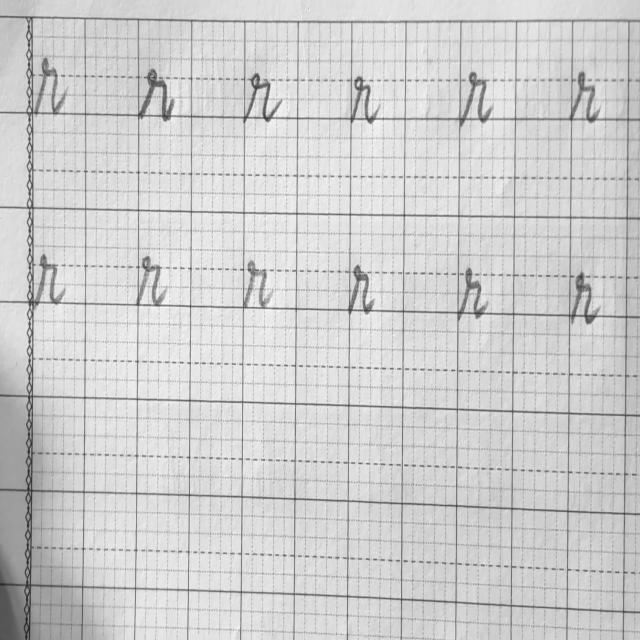 r r r r r r
r r r r r r